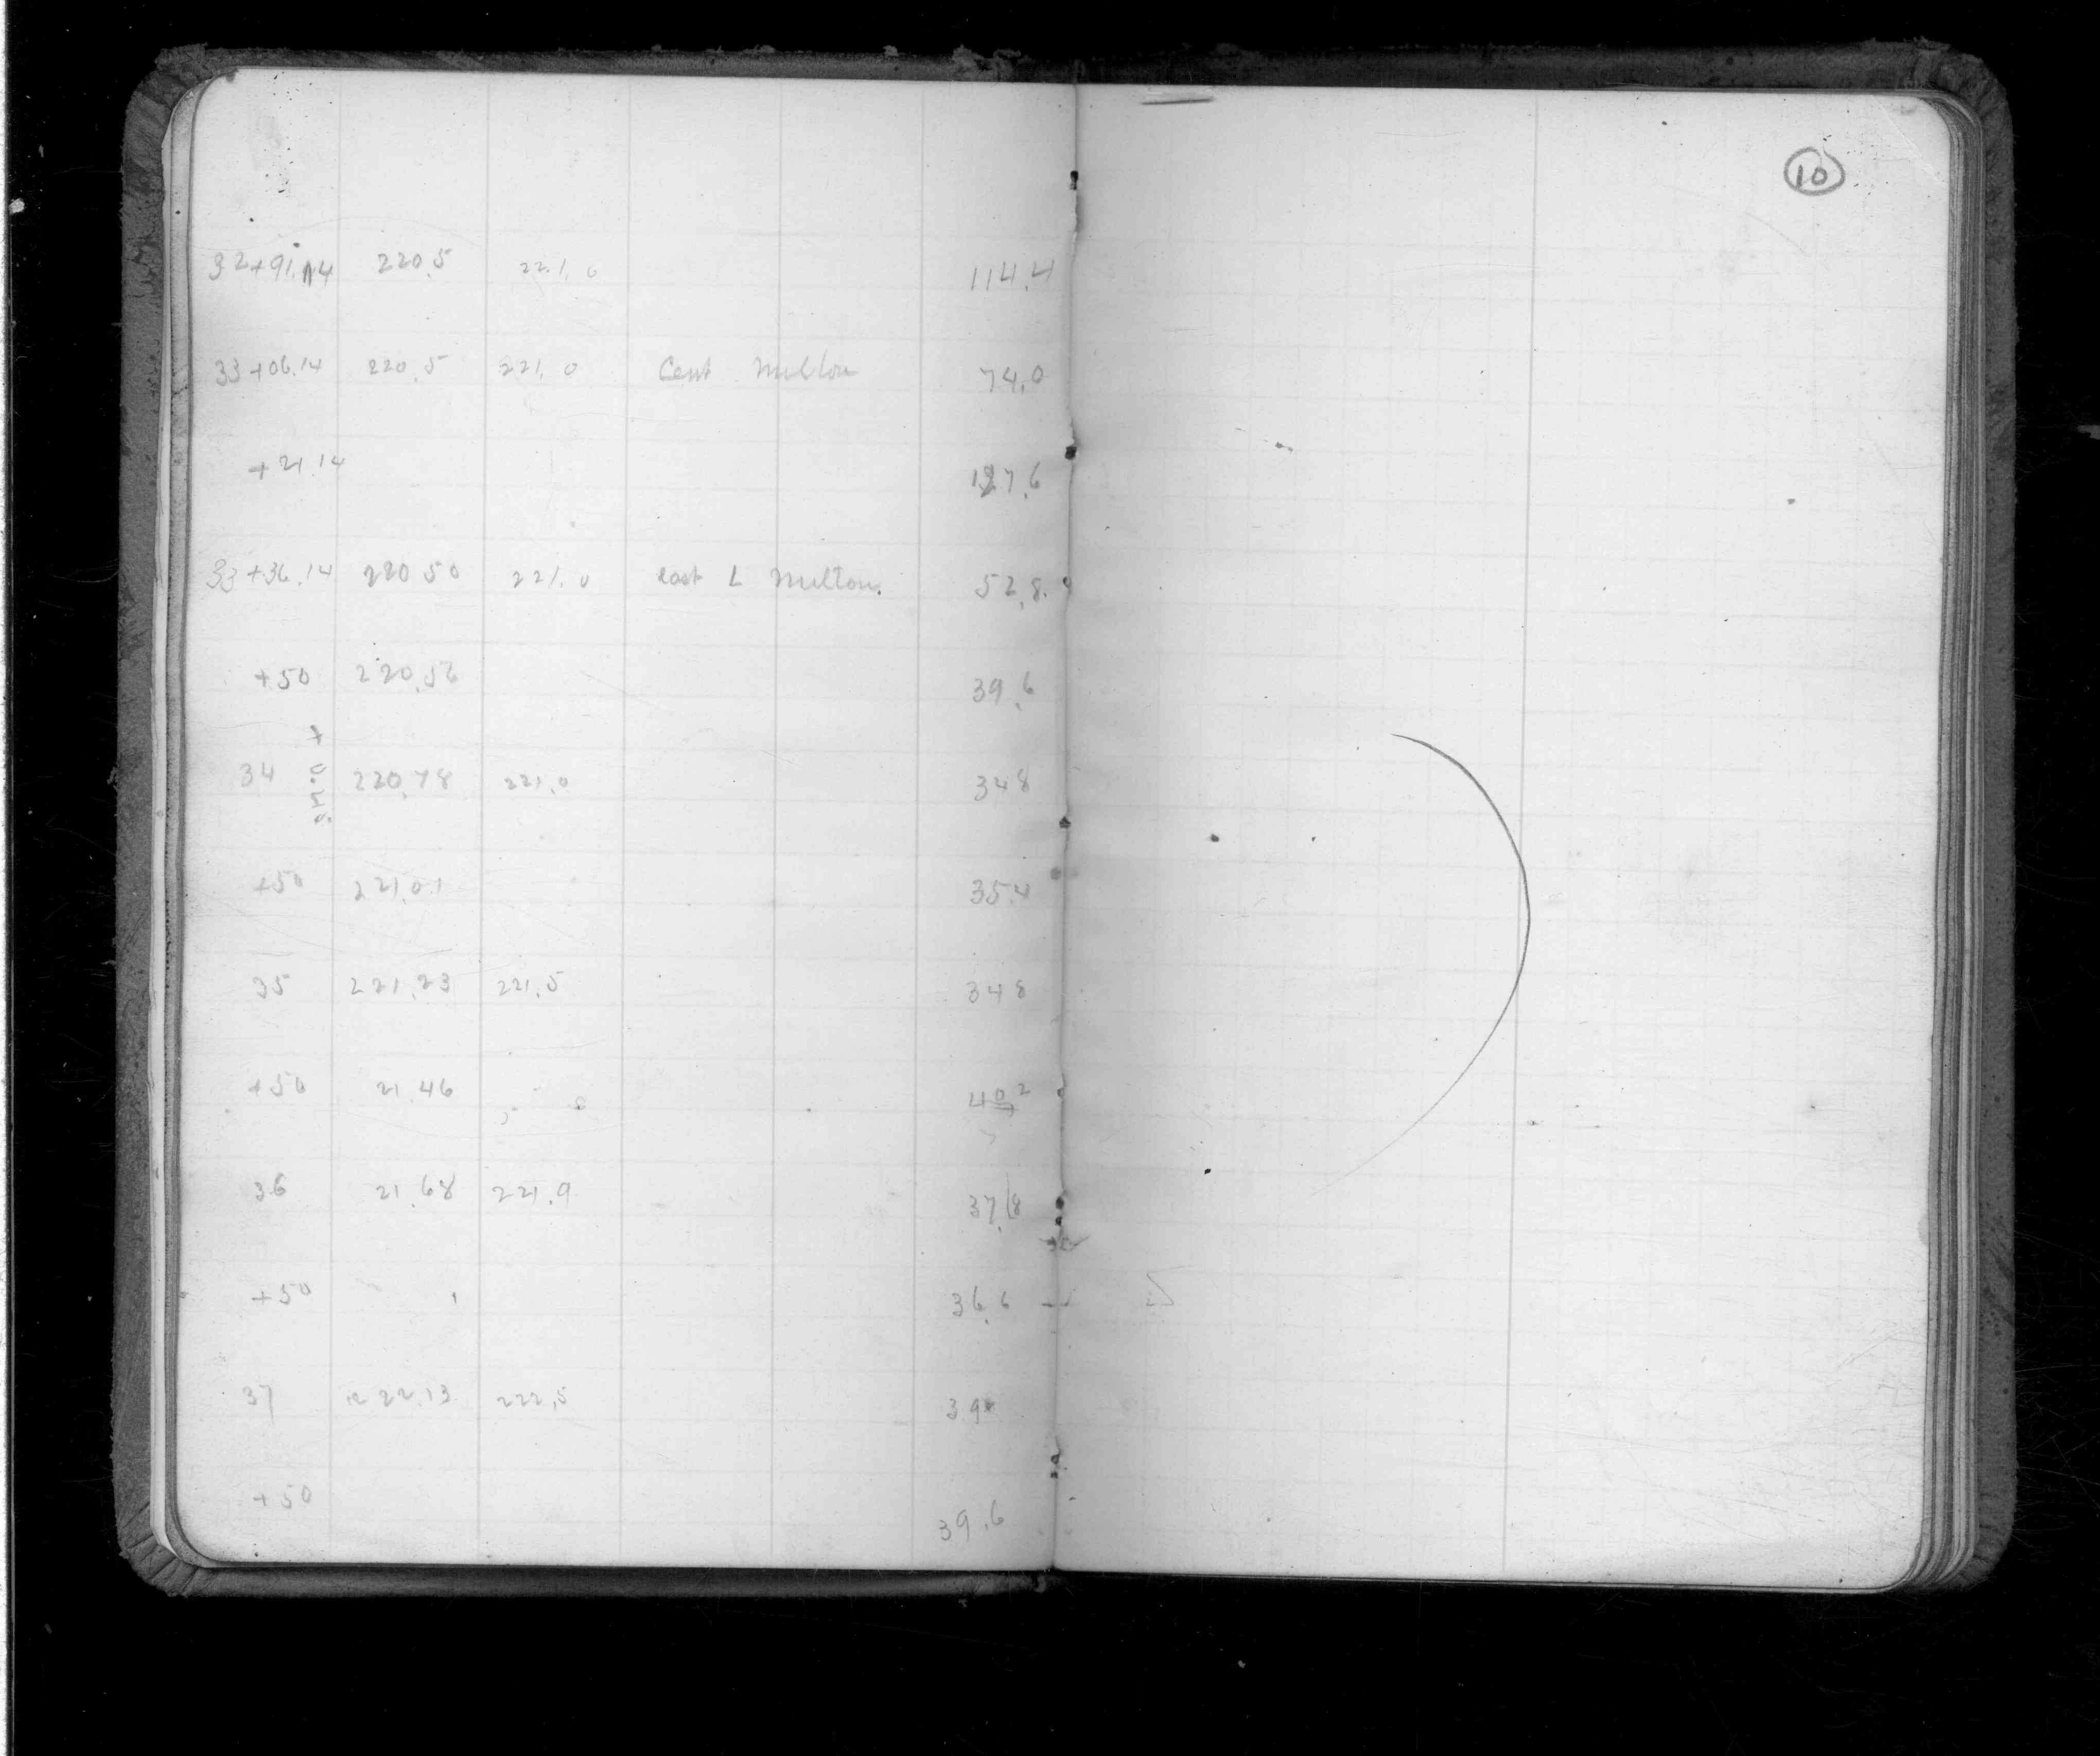 10
32+91.14 220.5 221.0 114.4
33+06.14 220.5 221.0 Cent Milton 74.0
+21.14 127.6
33+36.14 220.50 221.0 east L Milton. 52.8
+50 220.56 39.6
34 220.78 221.0 34 8
+50 221.01 35.4
35 221.23 221.5 34 8
+50 21.46 40 2
36 21.68 221.9 37.8
+50 36.6
37 222.13 222.5 39
+50 39.6